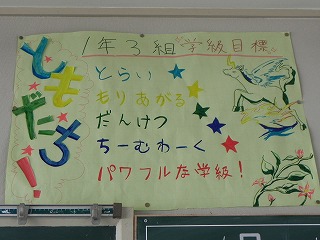 1年3組 学級目標
ともだち!
とらい
もりあがる
だんけつ
ちーむわーく
パワフルな学級!